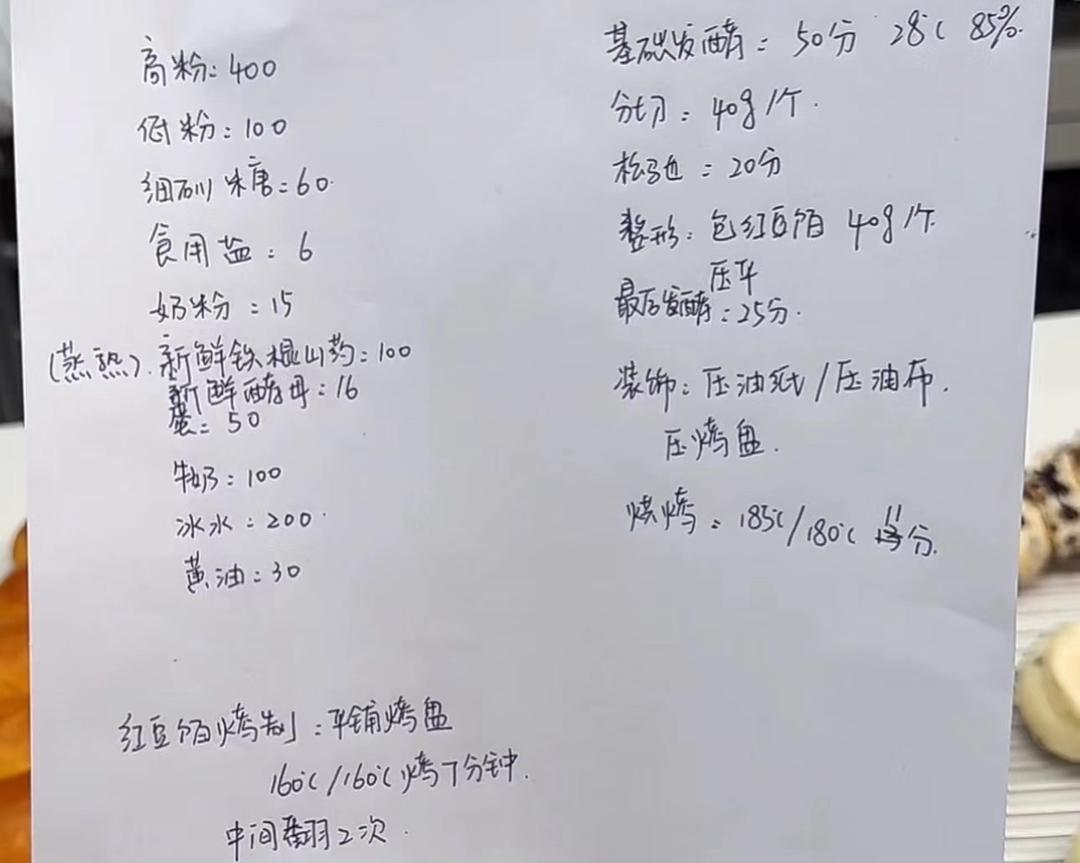 高粉：400
低粉：100
细砂糖：60
食用盐：6
奶粉：15
（蒸熟）新鲜铁棍山药：100
新鲜酵母：16
蛋：50
牛奶：100
冰水：200
黄油：30
红豆馅烤制：平铺烤盘
160℃/160℃烤7分钟.
中间翻2次.
基础发酵：50分 28℃ 85%.
分切：40g/个.
松弛：20分
整形：包红豆馅 40g/个.
压平
最后发酵：25分.
装饰：压油纸/压油布.
压烤盘.
烘烤：185℃/180℃ 11分.